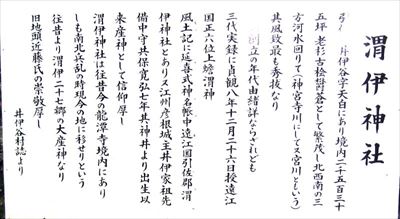 渭伊神社
井伊谷字天白にあり境内二千五百三十
五坪老杉古桧欝蒼として繁茂し北西南の三
方河水回りて(神宮寺川にして又宮川ともいう)
其風致最も秀抜なり
創立の年代由緒詳ならざれども
三代実録に貞観八年十二月二十六日授遠江
国正六位上蟾渭神
風土記に延喜式神名帳中遠江国引佐郡渭
伊神社とあり又江州彦根城主井伊家祖先
備中守共保寛弘七年共々神井より出生以
来産神として信仰厚し
渭伊神社は往昔今の龍潭寺境内にあり
しも南北兵乱の時現今の地に移せりという
往昔より渭伊二十七郷の大産神なり
旧地頭近藤氏の崇敬厚し
井伊谷村誌より